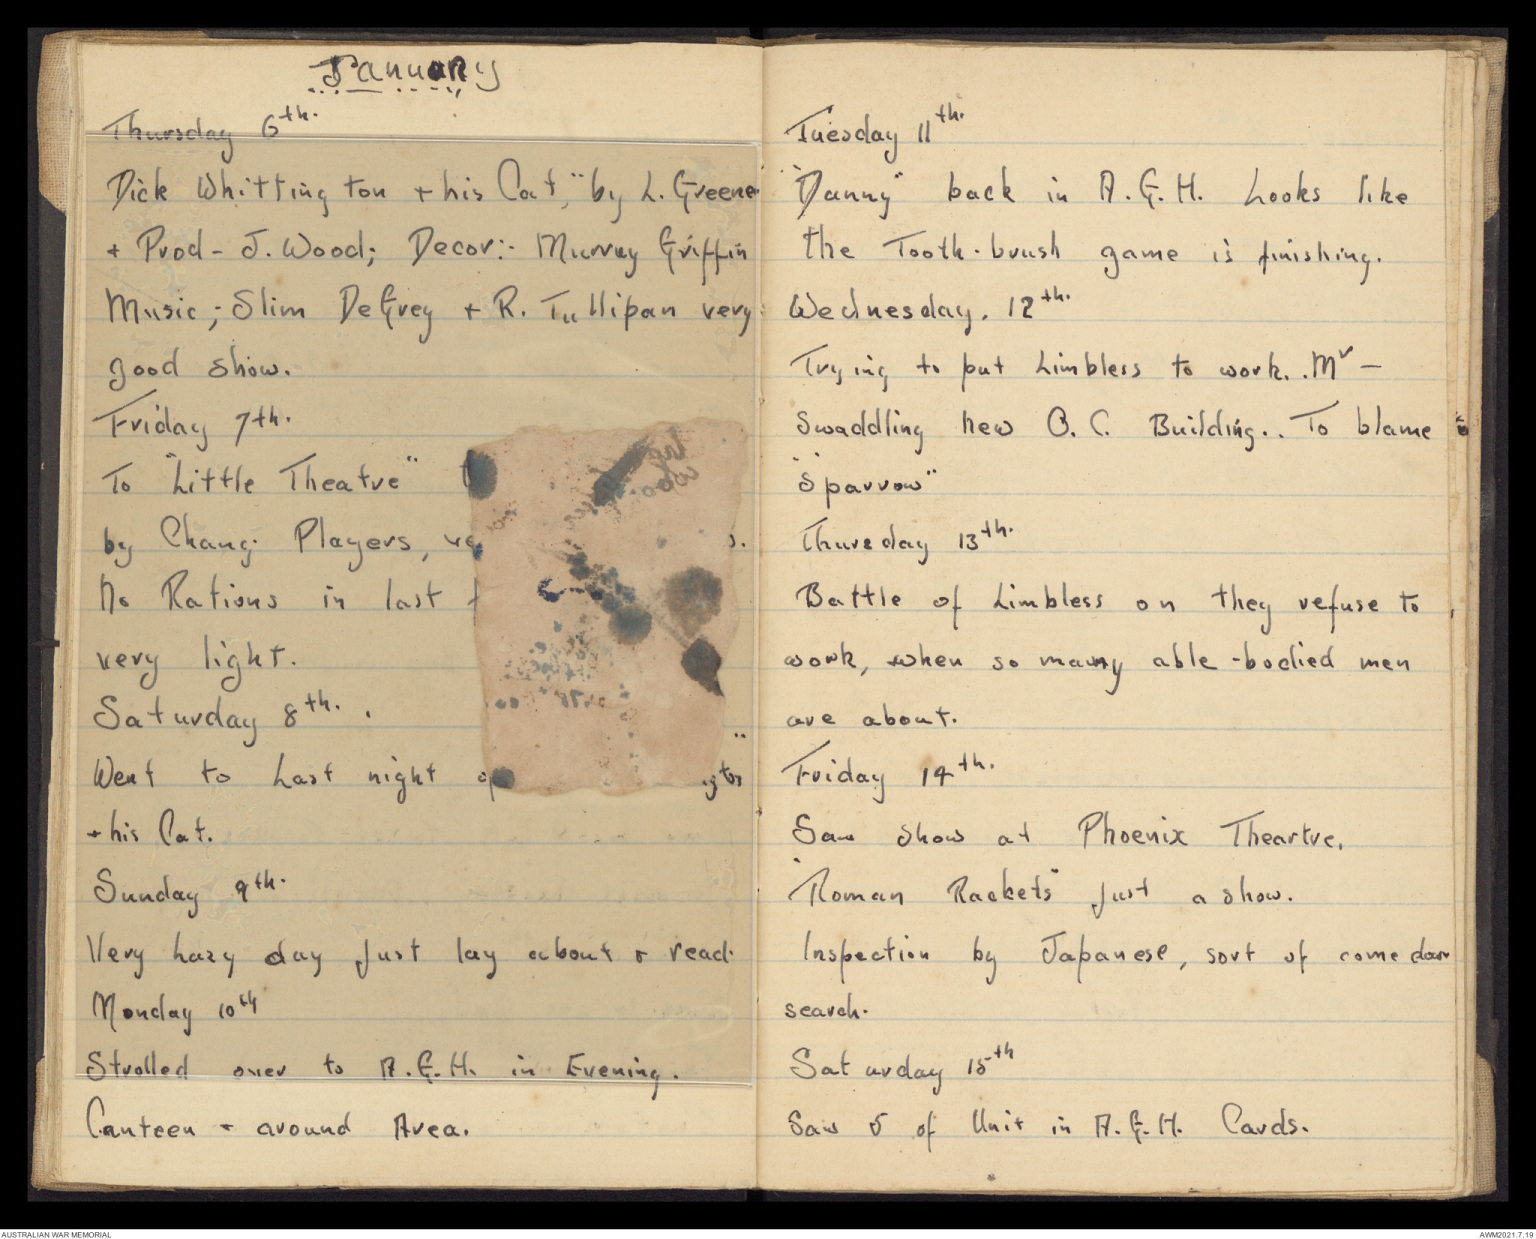 January
Thursday 6th.
Dick Whittington + his Cat," by L. Greene
+ Prod - J. Wood; Decor:- Murray Griffin
Music; Slim De Grey + R. Tullipan very
good show.
Friday 7th.
To "Little Theatre"
by Changi Players,
No Rations in last
very light.
Saturday 8th.
Went to Last night
+ his Cat.
Sunday 9th.
Very hazy day Just lay about & read.
Monday 10th
Strolled over to A.G.H. in Evening.
Canteen - around Area.
Tuesday 11th.
"Danny" back in A.G.H. Looks like
the Tooth-brush game is finishing.
Wednesday. 12th.
Trying to put Limbless to work. Mr -
Swaddling new O.C. Building.. To blame
"Sparrow"
Thursday 13th.
Battle of Limbless on they refuse to
work, when so many able-bodied men
are about.
Friday 14th.
Saw show at Phoenix Theartre.
"Roman Rackets" Just a show.
Inspection by Japanese, sort of come dam
search.
Saturday 15th
Saw 5 of Unit in A.G.H. Cards.
AUSTRALIAN WAR MEMORIAL
AWM2021.7.19